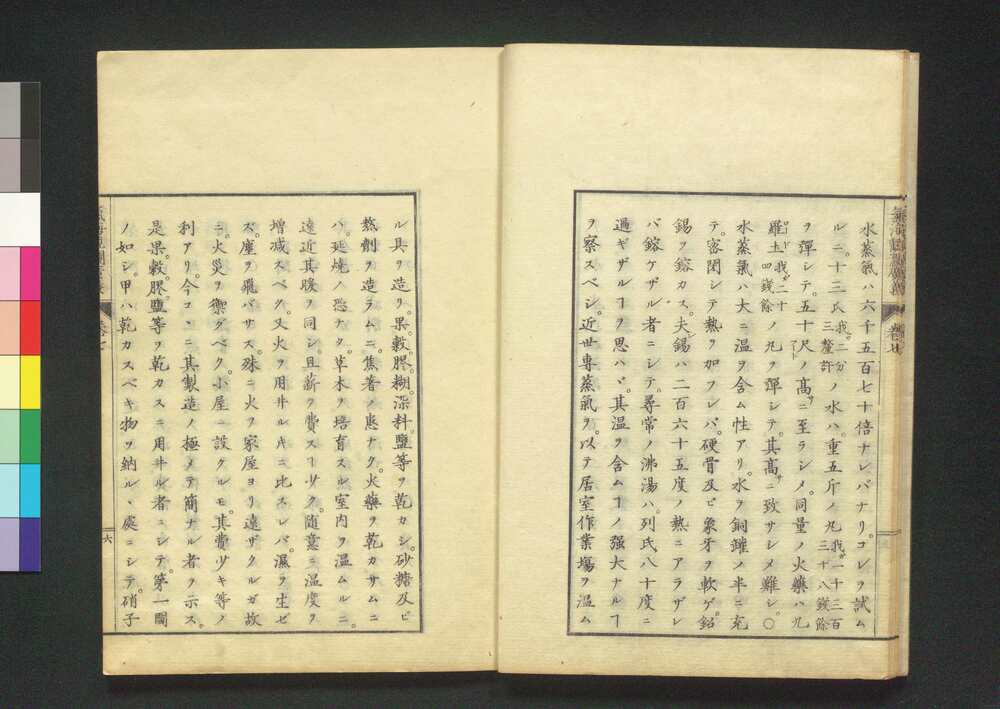 水蒸氣ハ六千五百七十倍ナレバナリ。コレヲ試ム
ルニ。十三氏我二分三釐許ノ水ハ。重五斤ノ丸我一千三百三十八錢餘
ヲ彈シテ。五十尺ノ高サニ至ラシメ。同量ノ火藥ハ九
羅土我二十四錢餘ノ丸ヲ彈シテ。其高ニ致サシメ難シ。〇
水蒸氣ハ大ニ温ヲ含ム性アリ。水ヲ銅鑵ノ半ニ充
テ。密閉シテ熱ヲ加フレバ。硬骨及ビ象牙ヲ軟ゲ。鉛
錫ヲ鎔カス。夫レ錫ハ二百六十五度ノ熱ニアラザレ
バ鎔ケザル者ニシテ。尋常ノ沸湯ハ。列氏八十度ニ
過ギザルヿヲ思ハヾ。其温ヲ含ムヿノ强大ナルヿ
ヲ察スベシ。近世專蒸氣ヲ以テ居室作業場ヲ温ム
ル具ヲ造リ。果。穀。膠。糊。染料。鹽等ヲ乾カシ。砂糖及ビ
熬劑ヲ造ラムニ。焦著ノ患ナク。火藥ヲ乾カサムニ
ハ。延燒ノ恐ナク。草木ヲ培育スル室内ヲ温ムルニ。
遠近其暖ヲ同シ。且薪ヲ費スヿ少ク。隨意ニ温度ヲ
增减スベク。又火ヲ用井ルキニ比スレバ。濕ヲ生ゼ
ズ。塵ヲ飛バサズ。殊ニ火ヲ家屋ヨリ遠ザクルガ故
ニ。火災ヲ禦グベク。小屋ニ設クルモ。其費少キ等ノ
利アリ。今コヽニ其製造ノ極メテ簡ナル者ヲ示ス。
是果。穀。膠。鹽等ヲ乾カスニ用井ル者ニシテ。第一圖
ノ如シ。甲ハ乾カスベキ物ヲ納ルヽ處ニシテ。硝子
六